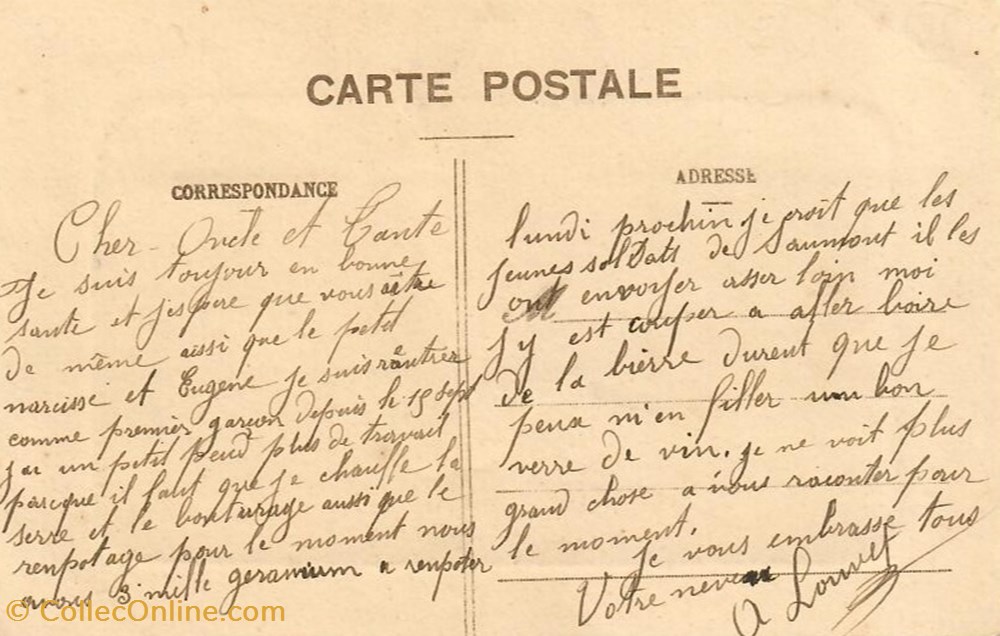 CARTE POSTALE
CORRESPONDANCE
Cher Oncle et Tante
Je suis toujour en bonne
sante et j'espere que vous aêtre
de même aissi que le petit
narcisse et Eugène je suis rentrer
comme premier garçon depuis le 15 Sept
j'ai un petit peud plus de travail
parcque il faut que je chauffe la
serre et le bouturage aussi que le
renpotage pour le moment nous
avons 3 mille geranium a renpoter
ADRESSE
lundi prochin je croit que les
jeunes soldats de Saumont il les
ont envoyer asser loin moi
j y est couper a aller boire
de la bierre durent que je
peux m'en filler un bon
verre de vin. je ne voit plus
grand chose a vous raconter pour
le moment.
Je vous embrasse tous
Votre neveu
A Louvet
© CollecOnline.com